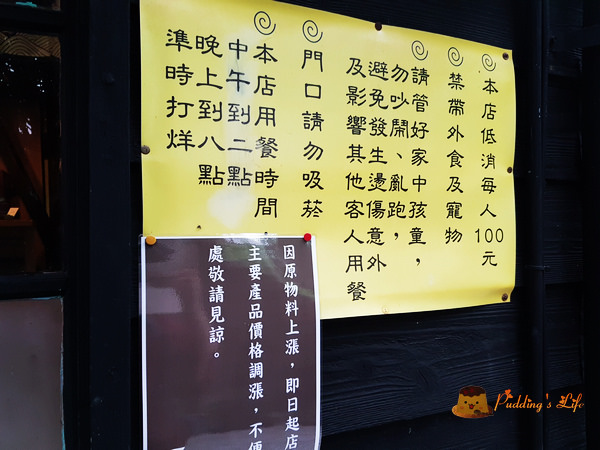 本店低消每人100元
禁帶外食及寵物
請管好家中孩童，
勿吵鬧、亂跑，
避免發生燙傷意外
及影響其他客人用餐
門口請勿吸菸
本店用餐時間
中午到二點
晚上到八點
準時打烊
因原物料上漲，即日起店
主要產品價格調漲，不便
處敬請見諒。
Pudding's Life